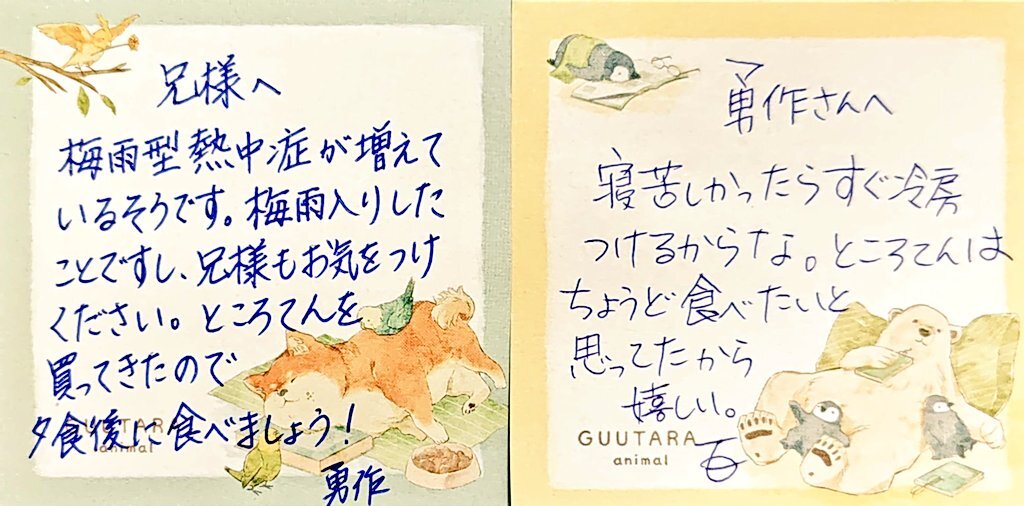 兄様へ
梅雨型熱中症が増えて
いるそうです。梅雨入りした
ことですし、兄様もお気をつけ
ください。ところてんを
買ってきたので
夕食後に食べましょう!
勇作
GUUTARA
animal
勇作さんへ
寝苦しかったらすぐ冷房
つけるからな。ところてんは
ちょうど食べたいと
思ってたから
嬉しい。
百
GUUTARA
animal